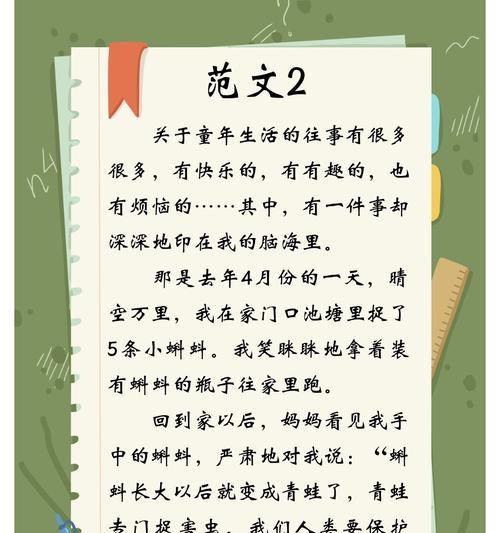 范文2
关于童年生活的往事有很多
很多，有快乐的，有有趣的，也
有烦恼的……其中，有一件事却
深深地印在我的脑海里。
那是去年4月份的一天，晴
空万里，我在家门口池塘里捉了
5条小蝌蚪。我笑眯眯地拿着装
有蝌蚪的瓶子往家里跑。
回到家以后，妈妈看见我手
中的蝌蚪，严肃地对我说：“蝌
蚪长大以后就变成青蛙了，青蛙
专门捉害虫，我们人类要保护